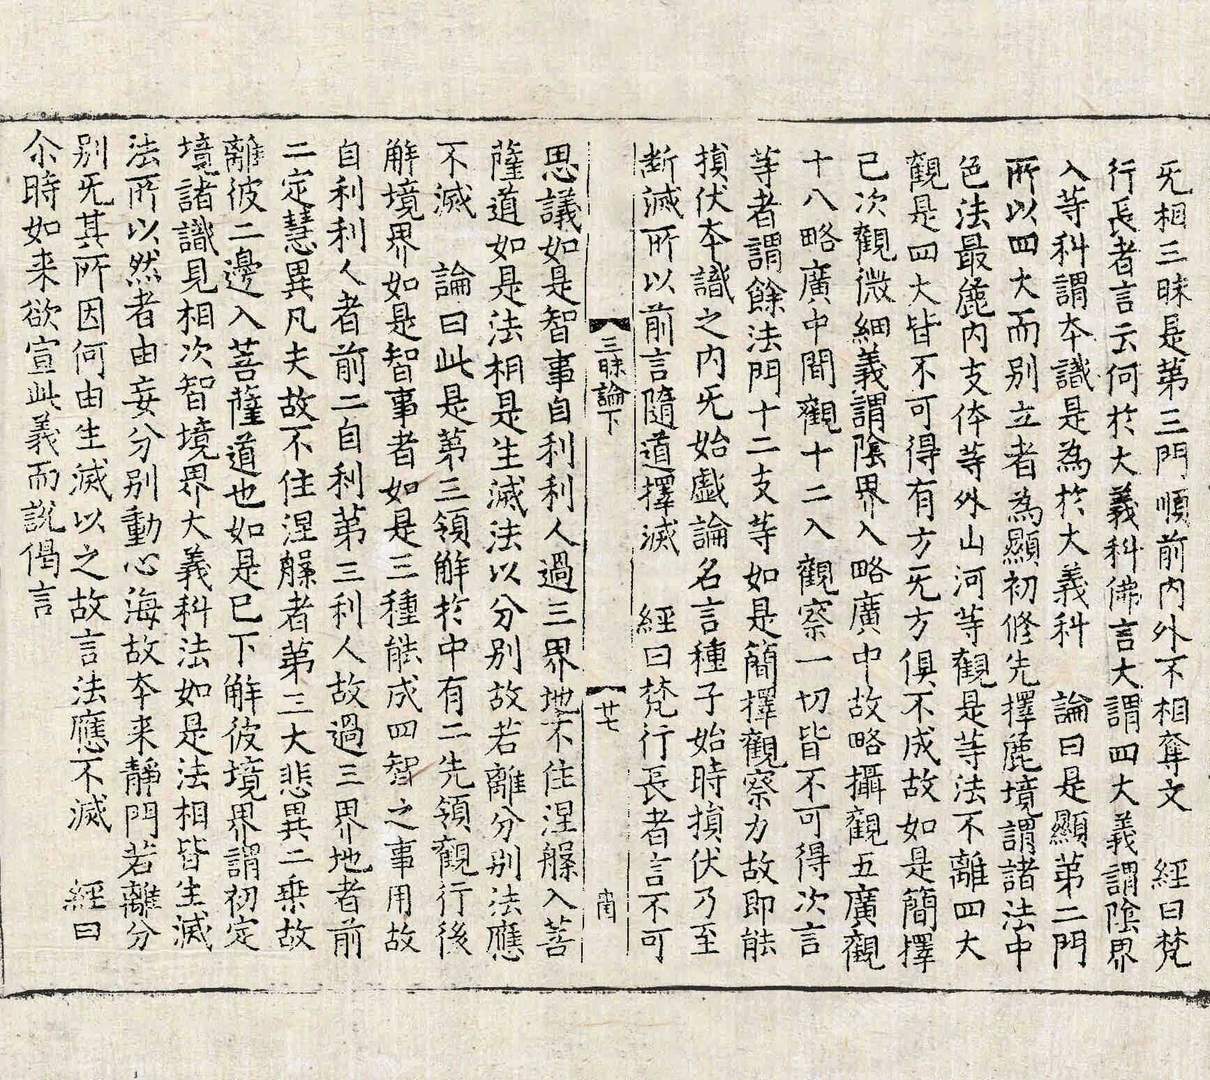 旡相三昧是第三門順前內外不相奪文　經曰梵
行長者言云何於大義科佛言大謂四大義謂隂界
入等科謂夲識是為於大義科　論曰是顯第二門
所以四大而别立者為顯初修先擇麁境謂諸法中
色法最麁内支体等外山河等觀是等法不離四大
觀是四大皆不可得有方旡方俱不成故如是簡擇
已次觀微細義謂隂界入略廣中故略攝觀五廣觀
十八略廣中間觀十二入觀察一切皆不可得次言
等者謂餘法門十二支等如是簡擇觀察力故即能
損伏夲識之内旡始戲論名言種子始時損伏乃至
断滅所以前言隨道擇滅　經曰梵行長者言不可
三昧論下　廿七　
思議如是智事自利利人過三界地不住涅槃入菩
薩道如是法相是生滅法以分别故若離分别法應
不滅　論曰此是第三領解於中有二先領觀行後
解境界如是智事者如是三種能成四智之事用故
自利利人者前二自利第三利人故過三界地者前
二定慧異凡夫故不住涅槃者第三大悲異二乗故
離彼二邊入菩薩道也如是已下解彼境界謂初定
境諸識見相次智境界大義科法如是法相皆生滅
法所以然者由妄分别動心海故夲来靜門若離分
别旡其所因何由生滅以之故言法應不滅　經曰
尒時如来欲宣此義而說偈言